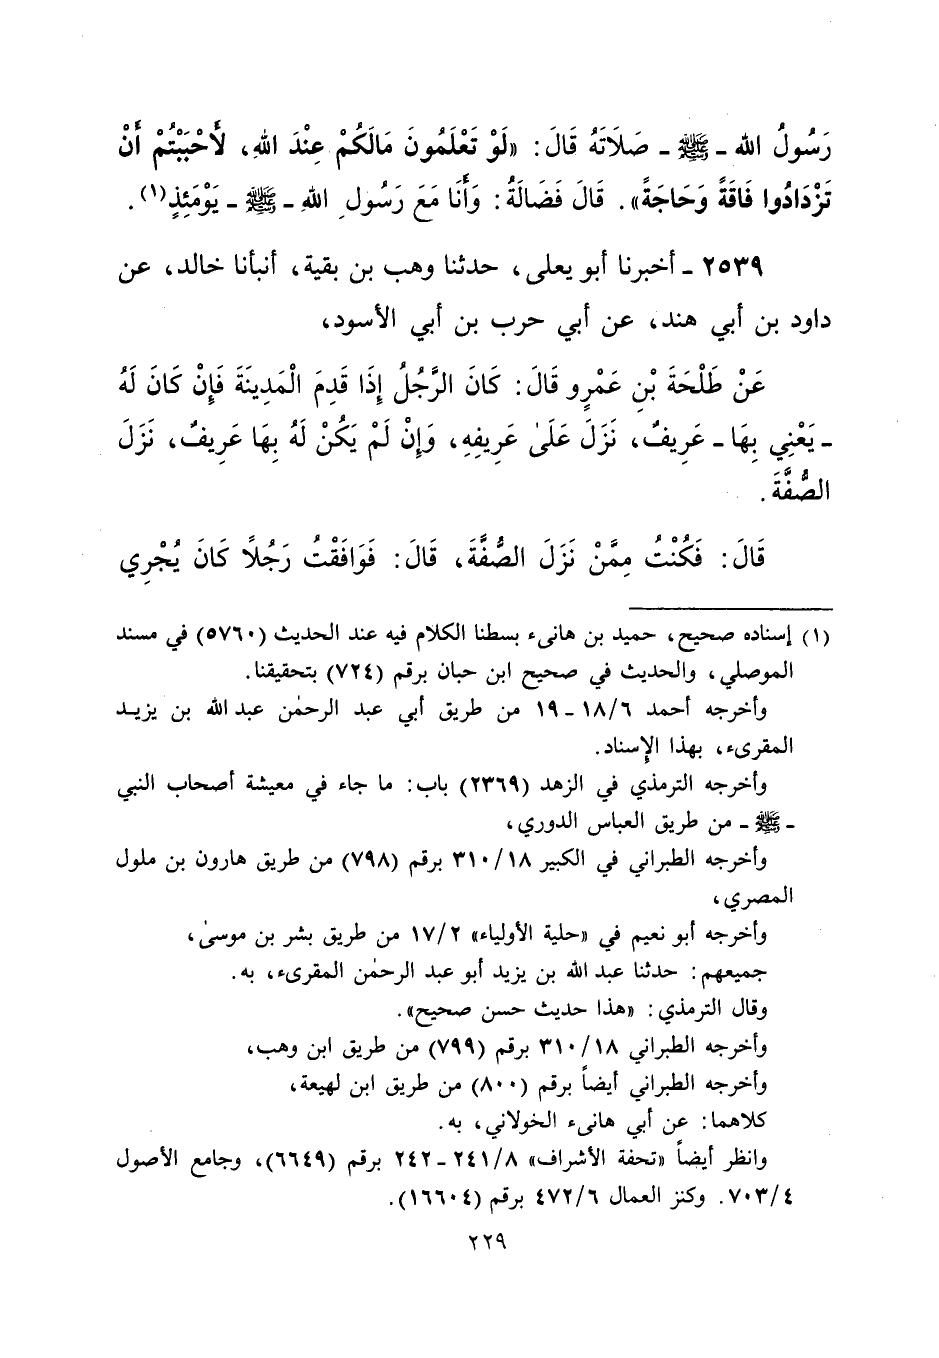 رَسُولُ الله ـ ﷺ ـ صَلَاتَهُ قَالَ: «لَوْ تَعْلَمُونَ مَالَكُمْ عِنْدَ اللهِ، لَأَحْبَبْتُمْ أَنْ
تَزْدَادُوا فَاقَةً وَحَاجَةً». قَالَ فَضَالَةُ: وَأَنَا مَعَ رَسُولِ اللهِ ـ ﷺ ـ يَوْمَئِذٍ(١).
٢٥٣٩ ـ أخبرنا أبو يعلى، حدثنا وهب بن بقية، أنبأنا خالد، عن
داود بن أبي هند، عن أبي حرب بن أبي الأسود،
عَنْ طَلْحَةَ بْنِ عَمْرٍو قَالَ: كَانَ الرَّجُلُ إِذَا قَدِمَ الْمَدِينَةَ فَإِنْ كَانَ لَهُ
ـ يَعْنِي بِهَا ـ عَرِيفٌ، نَزَلَ عَلَىٰ عَرِيفِهِ، وَإِنْ لَمْ يَكُنْ لَهُ بِهَا عَرِيفٌ، نَزَلَ
الصُّفَّةَ.
قَالَ: فَكُنْتُ مِمَّنْ نَزَلَ الصُّفَّةَ، قَالَ: فَوَافَقْتُ رَجُلًا كَانَ يُجْرِي
(١) إسناده صحيح، حميد بن هانىء بسطنا الكلام فيه عند الحديث (٥٧٦٠) في مسند
الموصلي، والحديث في صحيح ابن حبان برقم (٧٢٤) بتحقيقنا.
وأخرجه أحمد ١٨/٦ ـ ١٩ من طريق أبي عبد الرحمٰن عبد الله بن يزيد
المقرىء، بهذا الإسناد.
وأخرجه الترمذي في الزهد (٢٣٦٩) باب: ما جاء في معيشة أصحاب النبي
ـ ﷺ ـ من طريق العباس الدوري،
وأخرجه الطبراني في الكبير ٣١٠/١٨ برقم (٧٩٨) من طريق هارون بن ملول
المصري،
وأخرجه أبو نعيم في «حلية الأولياء» ١٧/٢ من طريق بشر بن موسىٰ،
جميعهم: حدثنا عبد الله بن يزيد أبو عبد الرحمٰن المقرىء، به.
وقال الترمذي: «هذا حديث حسن صحيح».
وأخرجه الطبراني ٣١٠/١٨ برقم (٧٩٩) من طريق ابن وهب،
وأخرجه الطبراني أيضاً برقم (٨٠٠) من طريق ابن لهيعة،
كلاهما: عن أبي هانىء الخولاني، به.
وانظر أيضاً «تحفة الأشراف» ٢٤١/٨ ـ ٢٤٢ برقم (٦٦٤٩)، وجامع الأصول
٧٠٣/٤. وكنز العمال ٤٧٢/٦ برقم (١٦٦٠٤).
٢٢٩